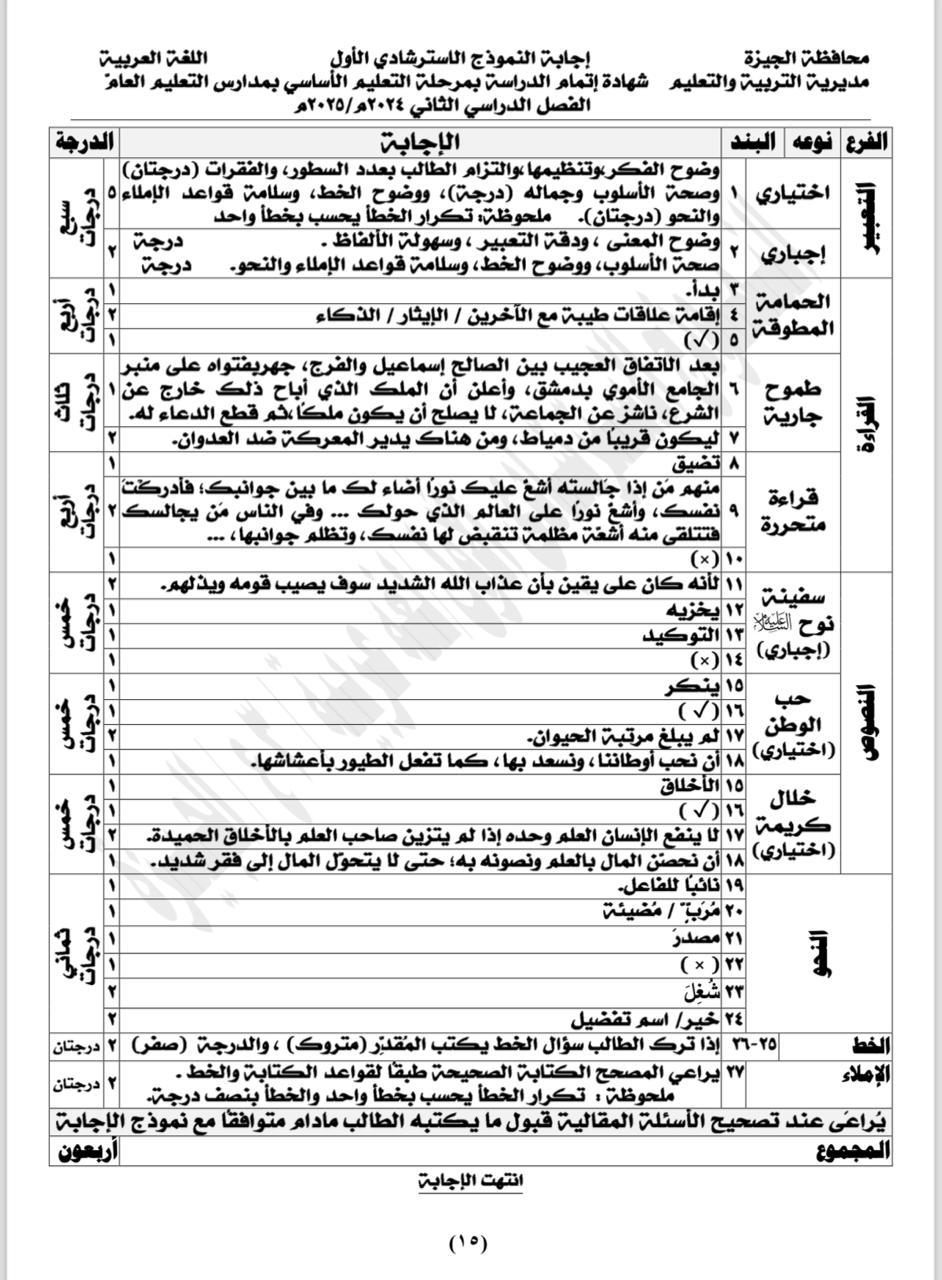 محافظة الجيزة إجابة النموذج الاسترشادي الأول اللغة العربية
مديرية التربية والتعليم شهادة إتمام الدراسة بمرحلة التعليم الأساسي بمدارس التعليم العام
الفصل الدراسي الثاني ٢٠٢٤م/٢٠٢٥م
الفرع نوعه البند الإجابة الدرجة
التعبير اختياري ١ وضوح الفكر،وتنظيمها،والتزام الطالب بعدد السطور، والفقرات (درجتان)
وصحة الأسلوب وجماله (درجة)، ووضوح الخط، وسلامة قواعد الإملاء
والنحو (درجتان). ملحوظة: تكرار الخطأ يحسب بخطأ واحد ٥ سبع درجات
إجباري ٢ وضوح المعنى ، ودقة التعبير ، وسهولة الألفاظ . درجة
صحة الأسلوب، ووضوح الخط، وسلامة قواعد الإملاء والنحو. درجة ٢
القراءة الحمامة المطوقة ٣ بدأ. ١ أربع درجات
٤ إقامة علاقات طيبة مع الآخرين / الإيثار / الذكاء ٢
٥ (√) ١
طموح جارية ٦ بعد الاتفاق العجيب بين الصالح إسماعيل والفرج، جهربفتواه على منبر
الجامع الأموي بدمشق، وأعلن أن الملك الذي أباح ذلك خارج عن
الشرع، ناشز عن الجماعة، لا يصلح أن يكون ملكًا،ثم قطع الدعاء له. ١ ثلاث درجات
٧ ليكون قريبًا من دمياط، ومن هناك يدير المعركة ضد العدوان. ٢
قراءة متحررة ٨ تضيق ١ أربع درجات
٩ منهم مَن إذا جالسته أشعَّ عليك نورًا أضاء لك ما بين جوانبك؛ فأدركتَ
نفسك، وأشعَّ نورًا على العالم الذي حولك ... وفي الناس مَن يجالسك
فتتلقى منه أشعَّة مظلمة تنقبض لها نفسك، وتظلم جوانبها، ... ٢
١٠ (×) ١
النصوص سفينة نوح عليه السلام (إجباري) ١١ لأنه كان على يقين بأن عذاب الله الشديد سوف يصيب قومه ويذلهم. ٢ خمس درجات
١٢ يخزيه ١
١٣ التوكيد ١
١٤ (×) ١
حب الوطن (اختياري) ١٥ ينكر ١ خمس درجات
١٦ (√) ١
١٧ لم يبلغ مرتبة الحيوان. ٢
١٨ أن نحب أوطاننا، ونسعد بها، كما تفعل الطيور بأعشاشها. ١
خلال كريمة (اختياري) ١٥ الأخلاق ١ خمس درجات
١٦ (√) ١
١٧ لا ينفع الإنسان العلم وحده إذا لم يتزين صاحب العلم بالأخلاق الحميدة. ٢
١٨ أن نحصّن المال بالعلم ونصونه به؛ حتى لا يتحوّل المال إلى فقر شديد. ١
النحو ١٩ نائبًا للفاعل. ١ ثماني درجات
٢٠ مُرَبٍّ / مُضيئة ١
٢١ مصدرَ ١
٢٢ (×) ١
٢٣ شُغِلَ ٢
٢٤ خير/ اسم تفضيل ٢
الخط ٢٥-٢٦ إذا ترك الطالب سؤال الخط يكتب المُقدِّر (متروك) ، والدرجة (صفر) ٢ درجتان
الإملاء ٢٧ يراعي المصحح الكتابة الصحيحة طبقًا لقواعد الكتابة والخط .
ملحوظة : تكرار الخطأ يحسب بخطأ واحد والخطأ بنصف درجة. ٢ درجتان
يُراعَى عند تصحيح الأسئلة المقالية قبول ما يكتبه الطالب مادام متوافقًا مع نموذج الإجابة
المجموع أربعون
انتهت الإجابة
(١٥)